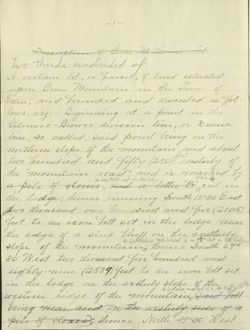 - 1 -
Description of
Two thirds undivided of
A certain lot, or parcel, of land situated
upon Green Mountain in the Town of
Eden, and bounded and described as fol-
lows, viz: Beginning at a point in the
line, or
line, so called, said point being on the
northern slope of the mountain and about
two hundred and fifty (250) westerly of
the mountain road and is marked by
a pile of stones, and a letter B cut in
the ledge; thence running South 50° East
two thousand one hundred and five (2105)
feet to an iron bolt set in the ledge near
the edge of a bluff on the southerly
slope of the mountain; thence South 67°
30' West two thousand five hundred and
eighty-nine (2589) feet to an iron bolt set
in the ledge on the westerly slope of the
western ridge of the mountain, said bolt
being near and on the westerly side of a
pile of stones; thence North 17° 30' West